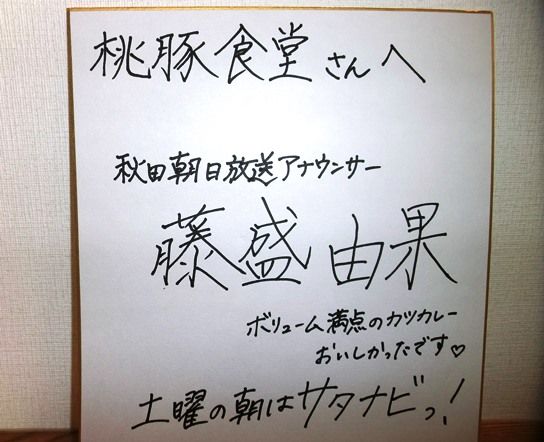 桃豚食堂さんへ
秋田朝日放送アナウンサー
藤盛由果
ボリューム満点のカツカレー
おいしかったです♡
土曜の朝はサタナビっ!